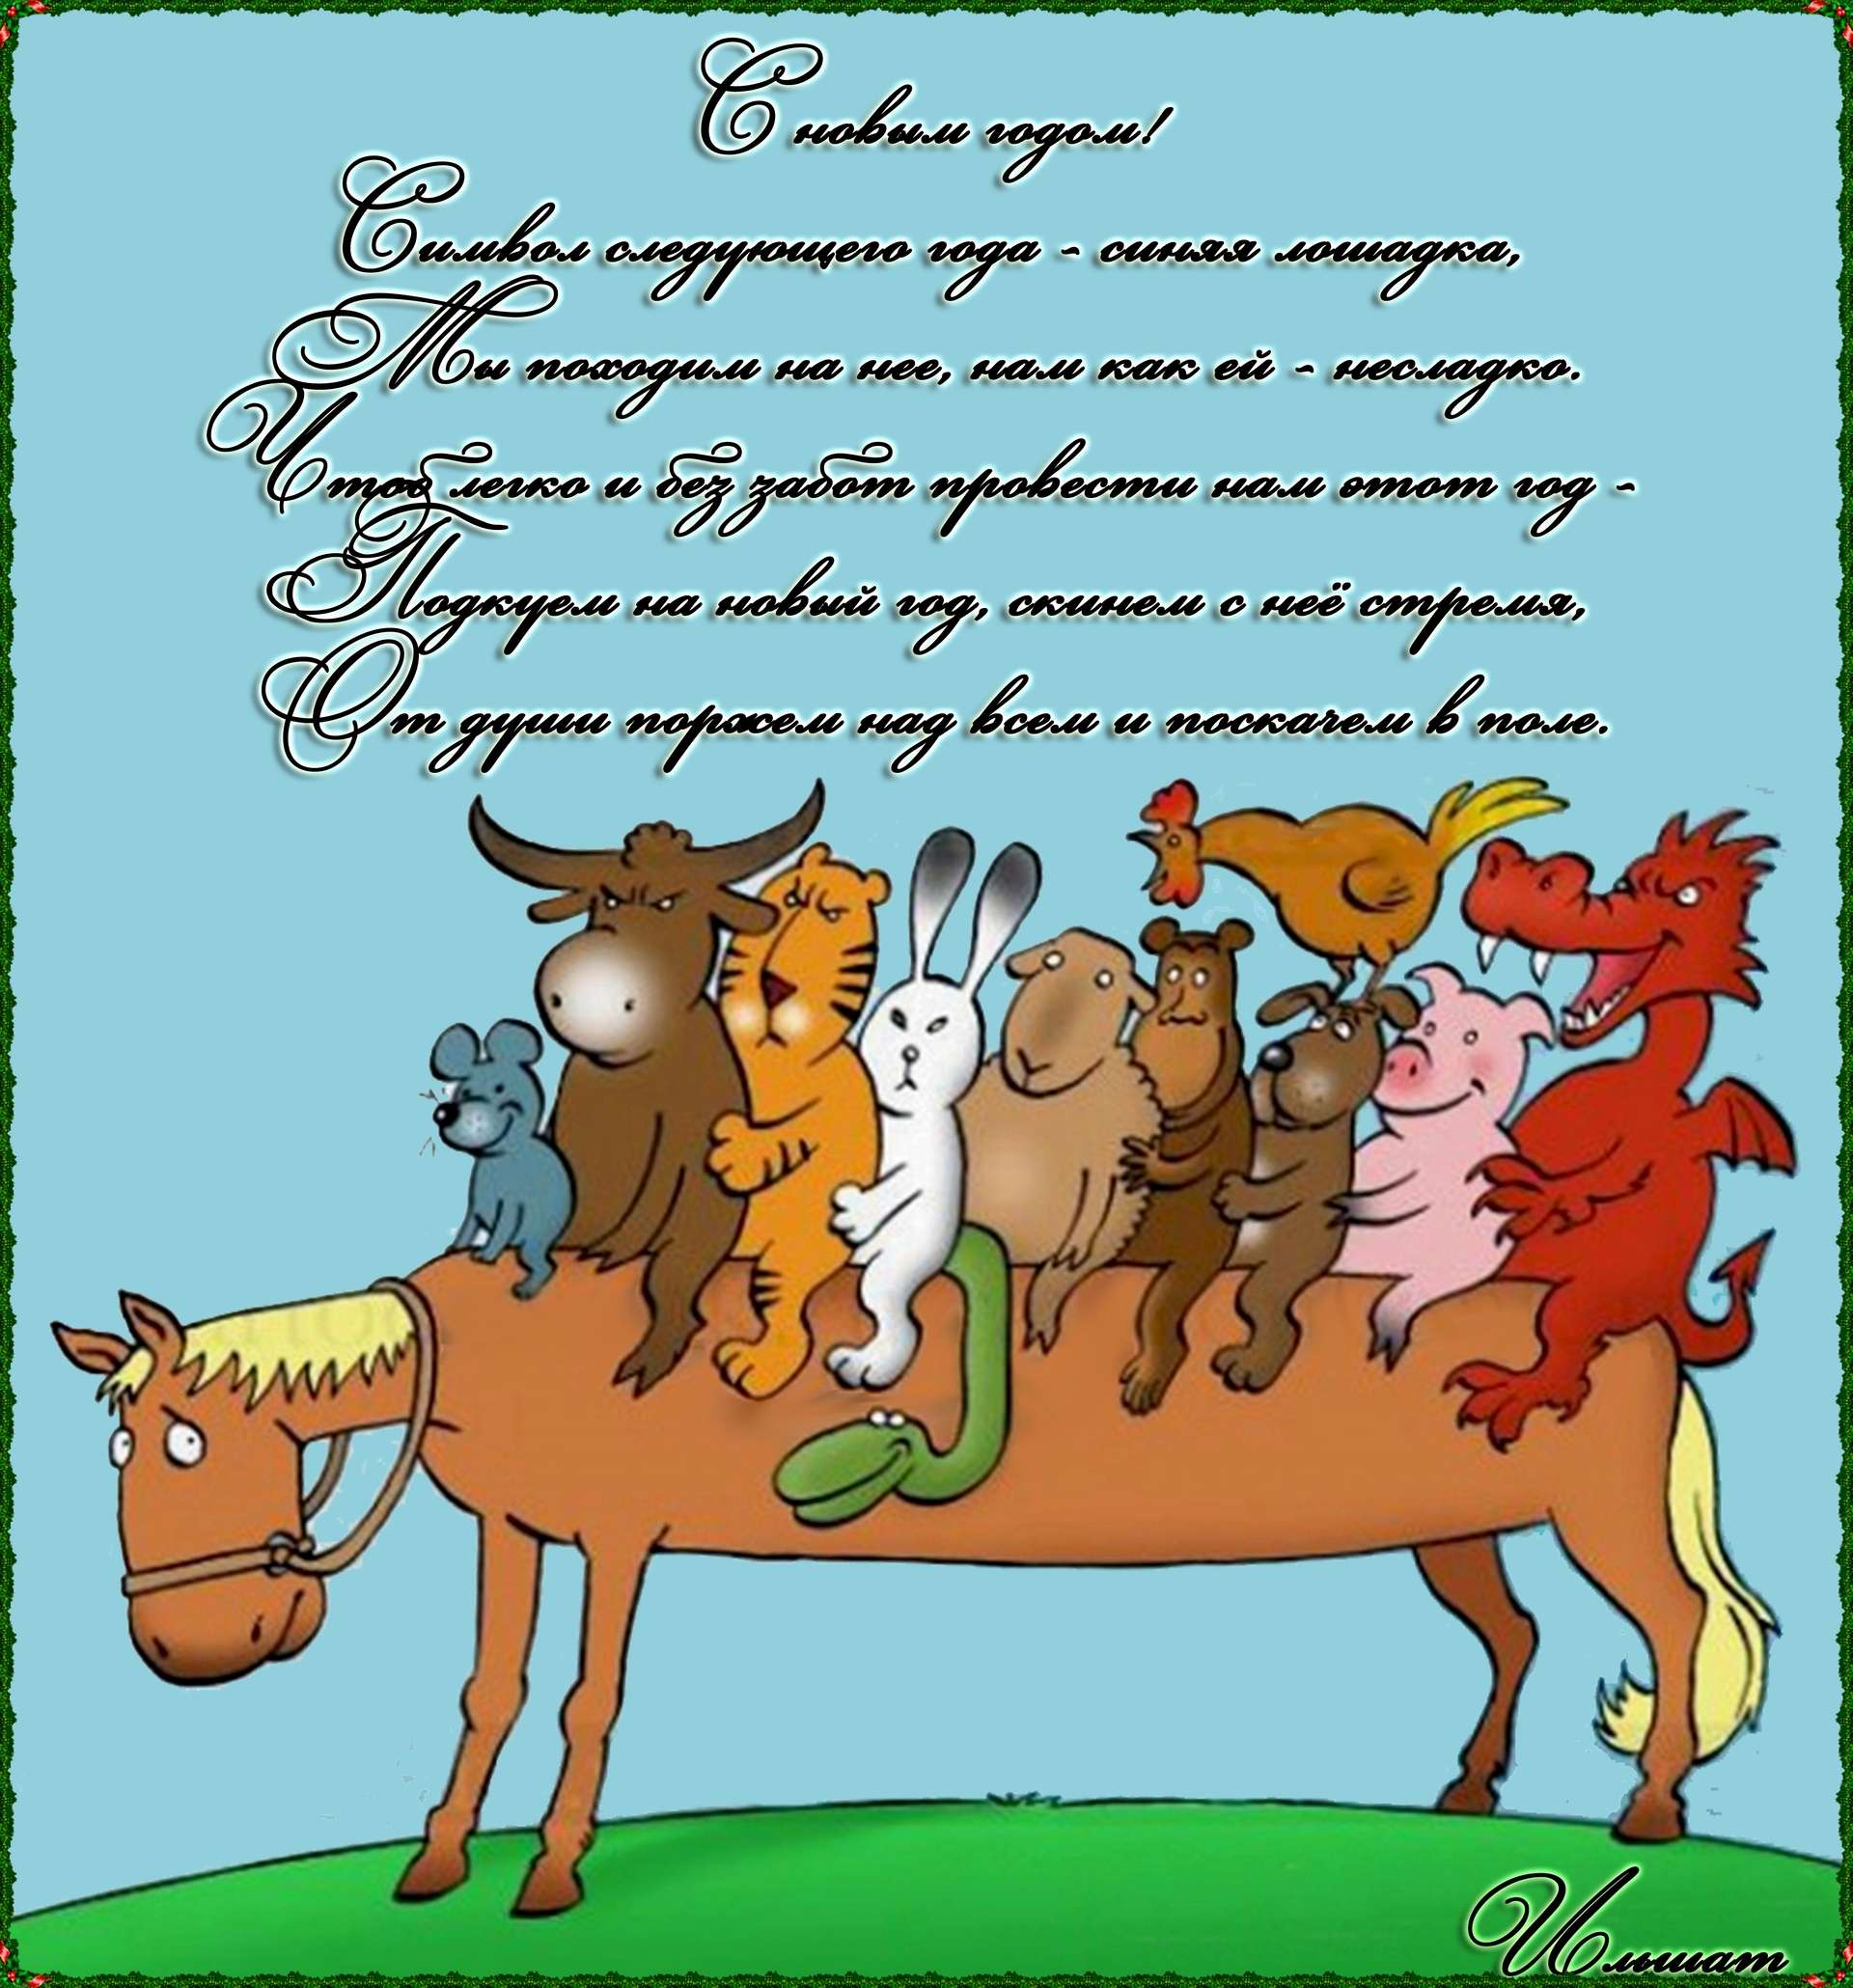 С новым годом!
Символ следующего года - синяя лошадка,
Мы походим на нее, нам как ей - несладко.
Чтоб легко и без забот провести нам этот год -
Подкуем на новый год, скинем с неё стремя,
От души поржем над всем и поскачем в поле.
Илышат